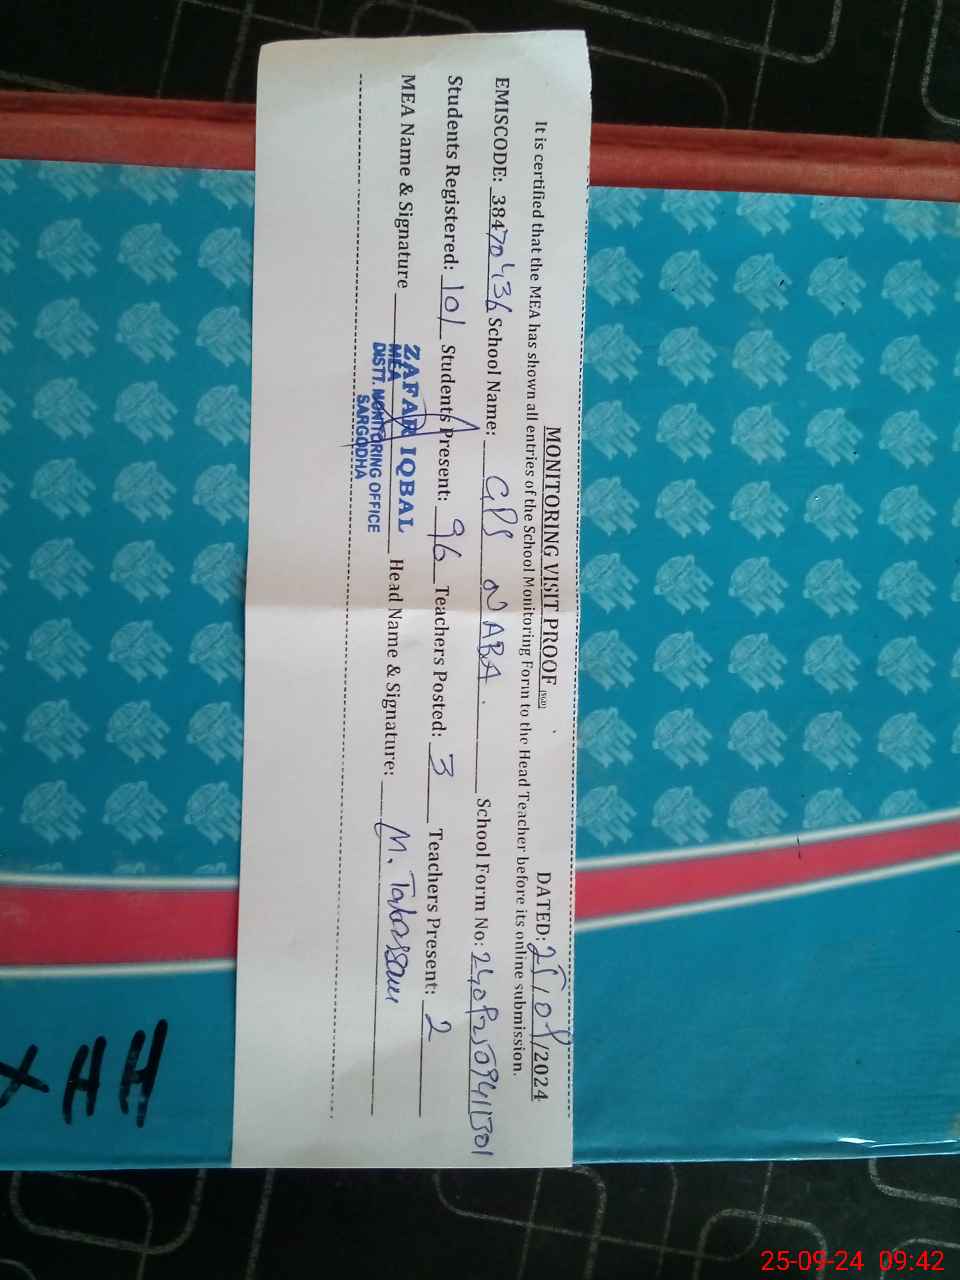 MONITORING VISIT PROOF (M&D) DATED: 25/09/2024
It is certified that the MEA has shown all entries of the School Monitoring Form to the Head Teacher before its online submission.
EMISCODE: 38470436 School Name: GPS NABA. School Form No:
Students Registered: 101 Students Present: 96 Teachers Posted: 3 Teachers Present: 2
MEA Name & Signature Head Name & Signature: M. Tabassam
ZAFAR IQBAL
MEA
DISTT. MONITORING OFFICE
SARGODHA
HH
25-09-24 09:42